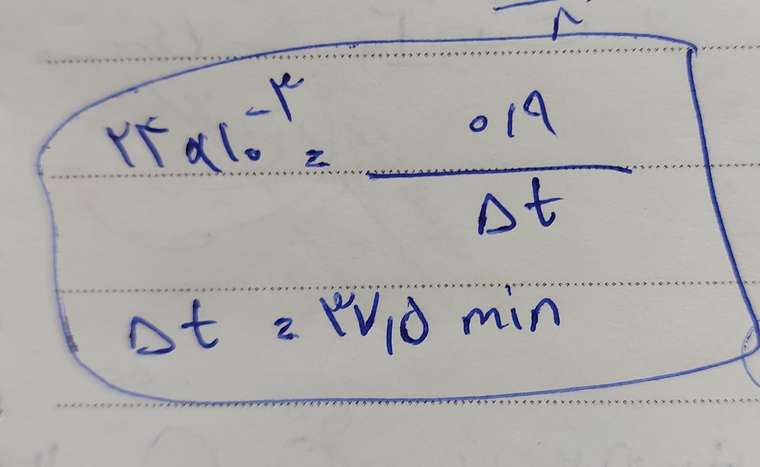 ۲۴ × ۱۰⁻³ = ۰٫۹ / Δt
Δt = ۳۷٫۵ min